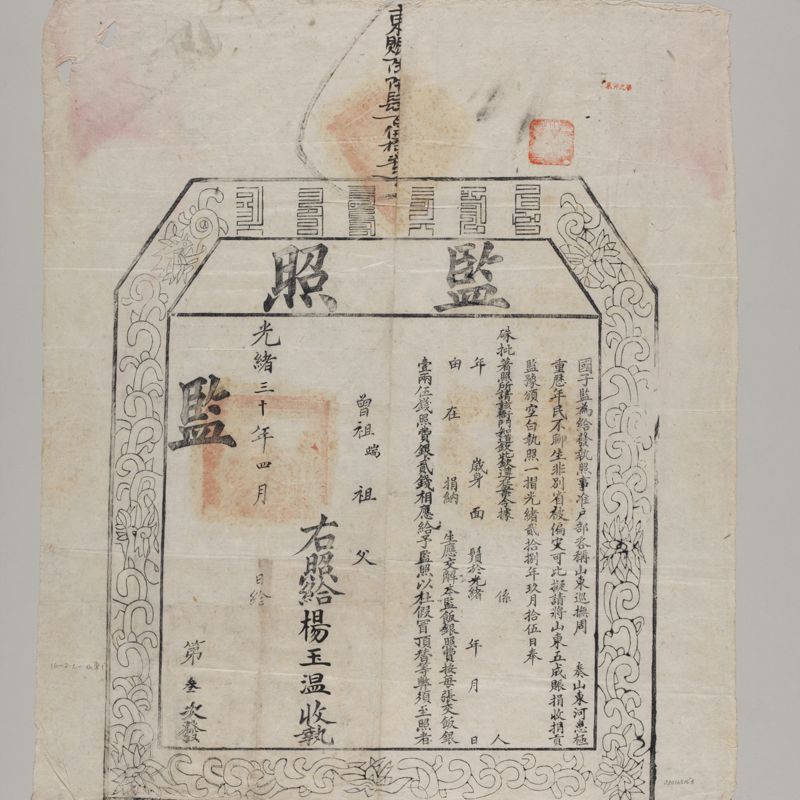 監照
國子監為給發執照事准戶部咨稱山東巡撫周 奏山東河患極
重歷年民不聊生非別省被偏災可比擬請將山東五成賑捐收捐貢
監豫頒空白執照一摺光緒貳拾捌年玖月拾伍日奉
硃批著照所請該衙門知道欽此欽遵在案今據
年 歲身 面 鬚於光緒 年 月 日
由 在 捐納 生應交解本監飯銀照費按每張交飯銀
壹兩伍錢照費銀貳錢相應給予監照以杜假冒頂替等弊須至照者
係 人
曾祖 端 祖 父
右照給楊玉温收執
光緒三十年四月 日給
監
第叁次發